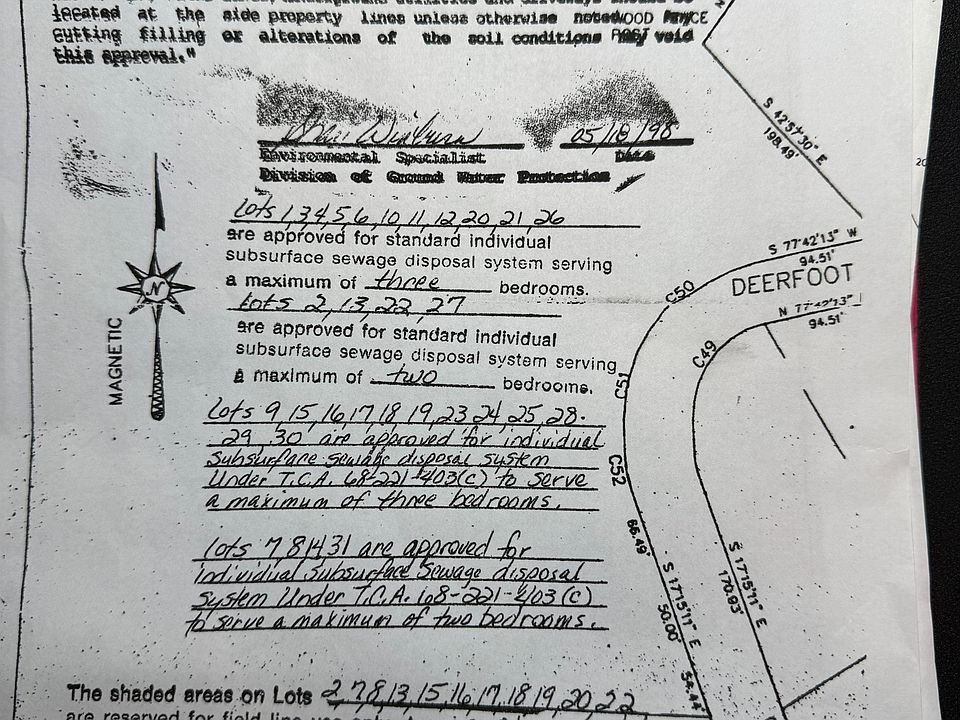 located at the side property lines unless otherwise noted
WOOD FENCE
POST
cutting filling or alterations of the soil conditions may void
this approval."
05/18/98
Environmental Specialist
Date
Division of Ground Water Protection
Lots 1,3,4,5,6,10,11,12,20,21,26
are approved for standard individual
subsurface sewage disposal system serving
a maximum of three bedrooms.
Lots 2,13,22,27
are approved for standard individual
subsurface sewage disposal system serving
a maximum of two bedrooms.
Lots 9,15,16,17,18,19,23,24,25,28.
29,30 are approved for individual
Subsurface sewage disposal system
Under T.C.A. 68-221-403(c) to serve
a maximum of three bedrooms.
lots 7 8 14 31 are approved for
individual Subsurface Sewage disposal
System Under T.C.A. 68-221-403(c)
to serve a maximum of two bedrooms.
The shaded areas on Lots 2,7,8,13,15,16,17,18,19,20,22
are reserved for field line use
MAGNETIC
N
S 42°57'30" E
198.49'
S 77°42'13" W
94.51'
DEERFOOT
N 77°42'13"
94.51'
C50
C49
C51
C52
66.49'
S 17°15'11" E
50.00'
S 17°15'11" E
170.93'
54.44'